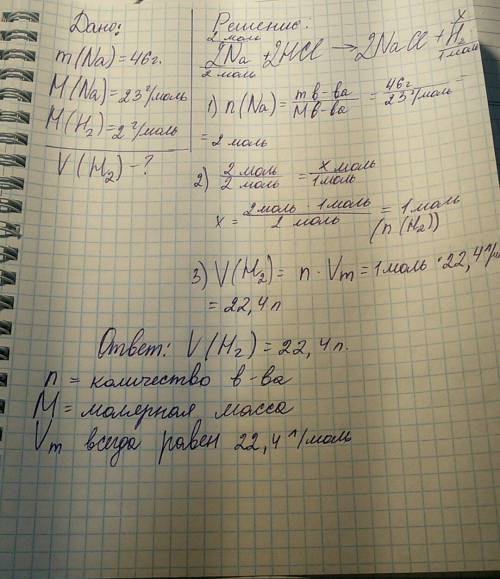 Дано:
m(Na)=46г.
M(Na)=23г/моль
M(H₂)=2г/моль
V(H₂)-?
Решение:
2 моль x
2Na+2HCl→2NaCl+H₂
2 моль 1моль
1) n(Na)=m в-ва/M в-ва=46г/23г/моль=
=2 моль
2) 2 моль/2 моль=x моль/1моль
x=2моль·1моль/2 моль=1моль
(n(H₂))
3) V(H₂)=n·Vm=1моль·22,4л/
=22,4л
Ответ: V(H₂)=22,4л.
n=количество в-ва
M=молярная масса
Vm всегда равен 22,4л/моль